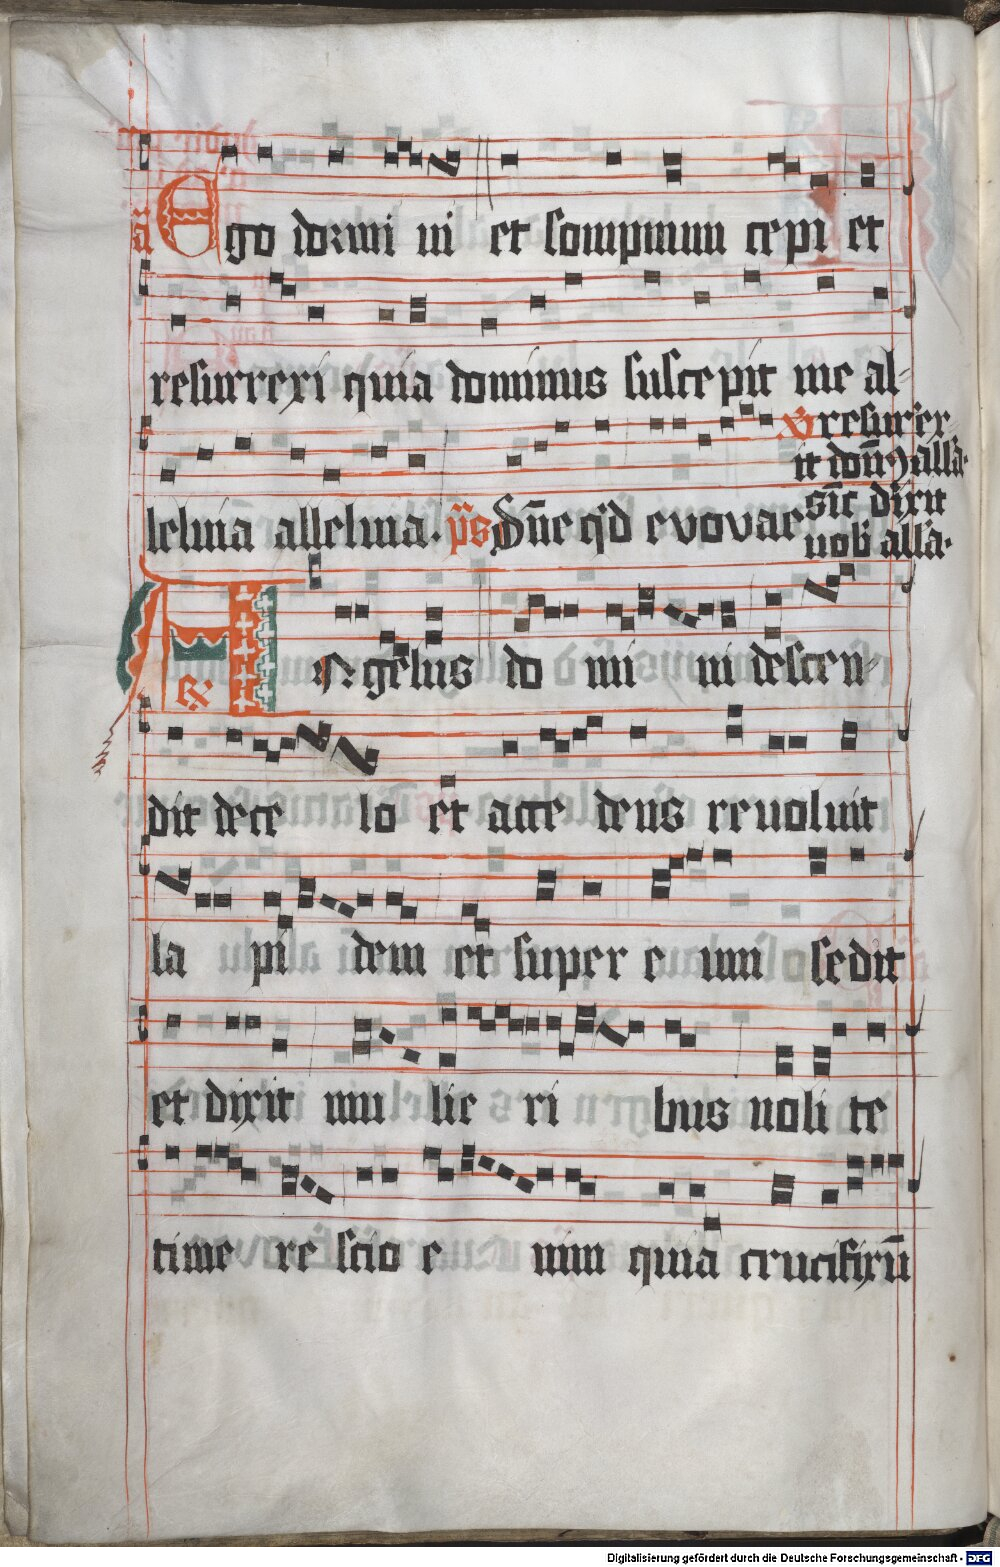 a Ego dormi ui et sompnum cepi et
resurrexi quia dominus suscepit me al-
leluia alleluia. p̄s Dn̄e q̇d evovae
℣ resurrex-
it dom̄ alla.
sic̄ dixit
uob alla.
℞ Angelus do mi ni descen-
dit de ce lo et acce dens reuoluit
la pi dem et super e um sedit
et dixit mu lie ri bus noli te
time re scio e nim quia crucifixū
Digitalisierung gefördert durch die Deutsche Forschungsgemeinschaft - DFG